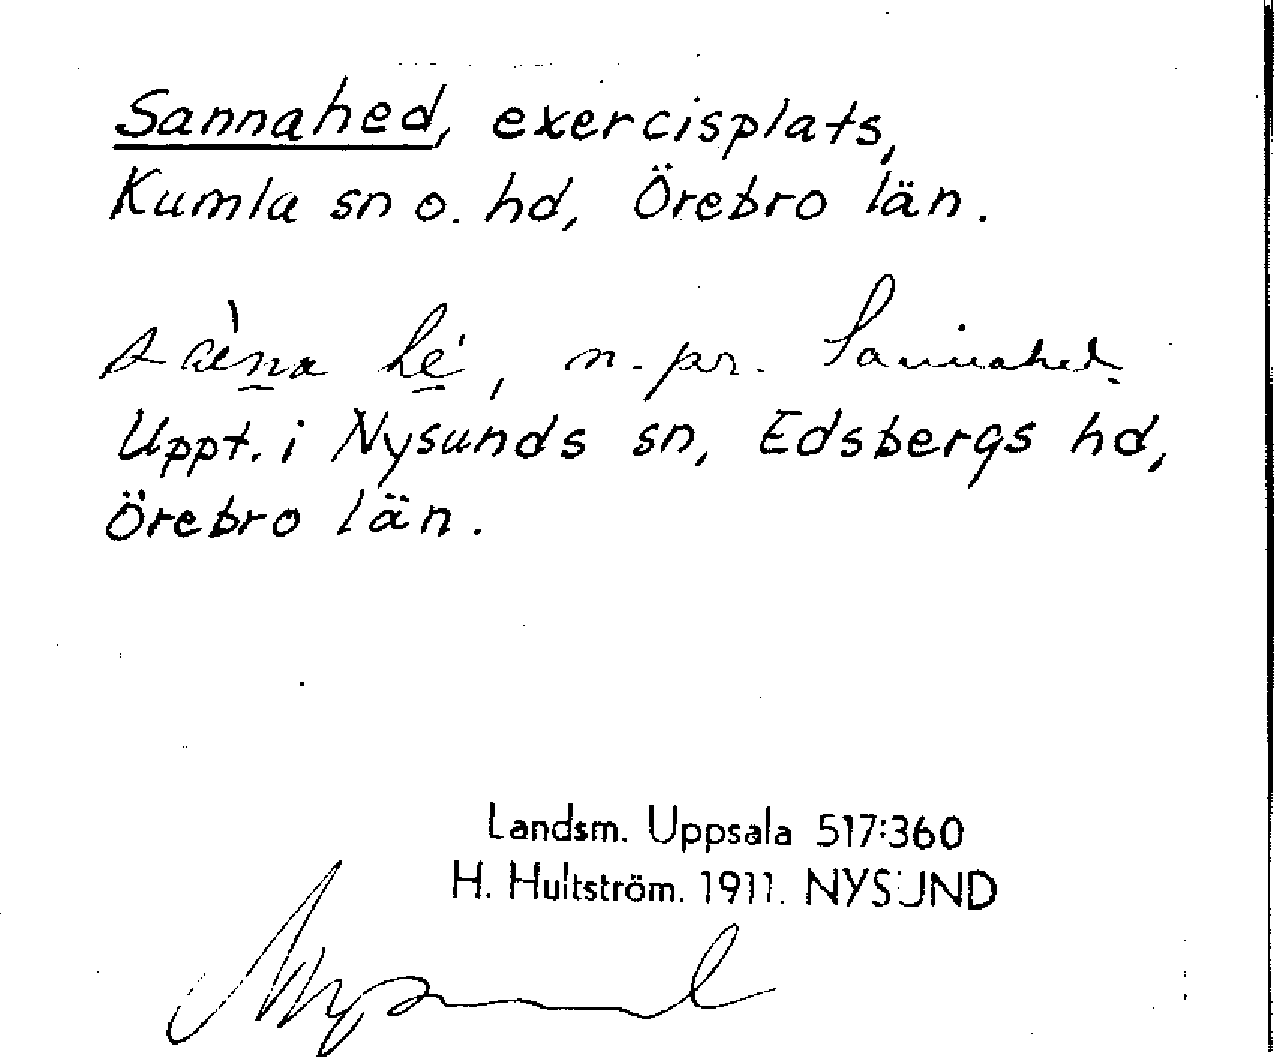 Sannahed, exercisplats,
Kumla sn o. hd, Örebro län.
hé, n. pr. Sannahed.
Uppt. i Nysunds sn, Edsbergs hd,
Örebro län.
Landsm. Uppsala 517:360
H. Hultström. 1911. NYSUND
Nysund